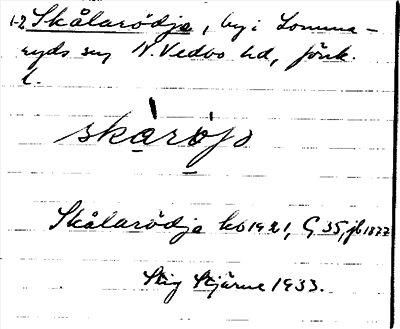 1-2 Skålarödja, by i Lomma-
ryds sn N. Vedbo hd, Jönk.
l.
skàrø̀jɔ
Skålarödja kb 1921, G 35, jb 1877
Stig Stjärne 1933.